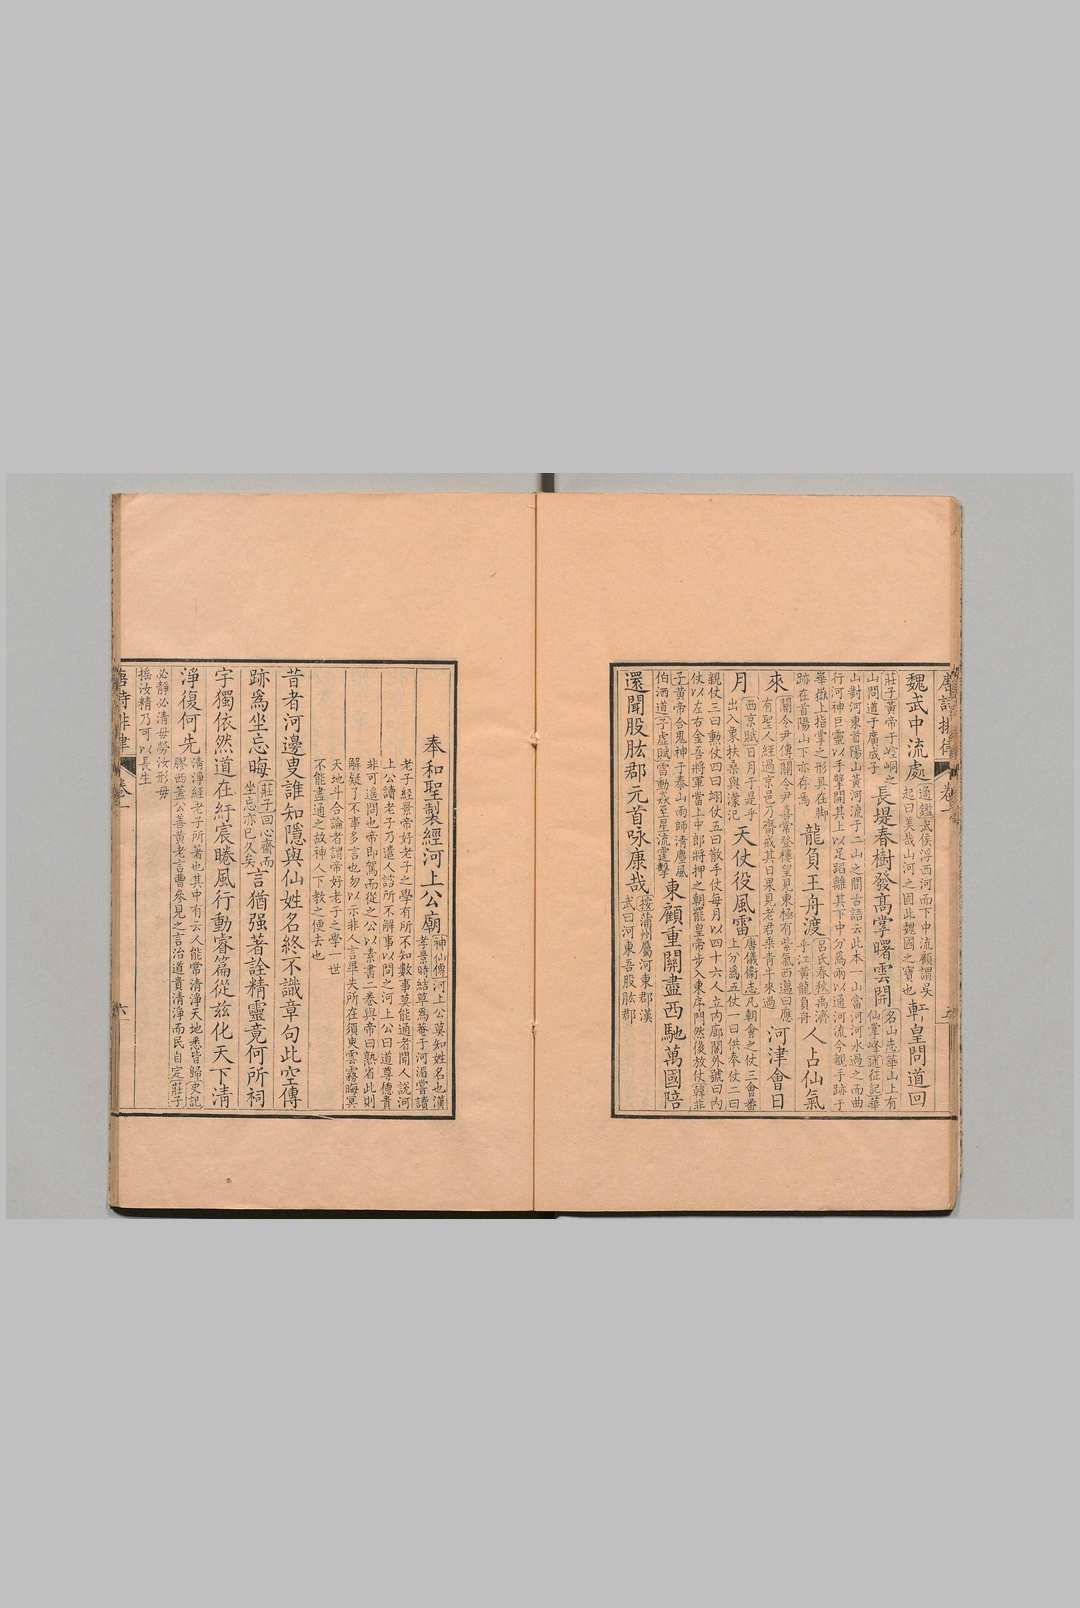 唐詩排律 卷一 五
魏武中流處通鑑武侯浮西河而下中流顧謂吳起曰美哉山河之固此魏國之寶也軒皇問道回
莊子黃帝于崆峒之山問道于廣成子長堤春樹發高掌曙雲開名山志華山上有仙掌峰述征記華
山對河東首陽山黃河流于二山之間古語云此本一山當河河水過之而曲
行河神巨靈以手擘開其上以足蹈離其下中分爲兩以通河流今覩手跡于
華嶽上指掌之形具在脚跡在首陽山下亦存焉龍負王舟渡呂氏春秋禹濟乎江黃龍負舟人占仙氣
來關令尹傳關令尹喜常登樓望見東極有紫氣西邁曰應有聖人經過京邑乃齋戒其日果見老君乘青牛來過河津會日
月西京賦日月于是乎出入象扶桑與濛汜天仗役風雷唐儀衞志凡朝會之仗三會番上分爲五仗一曰供奉仗二曰
親仗三曰勳仗四曰翊仗五曰散手仗每月以四十六人立內廊閤外號曰內
仗以左右金吾將軍當上中郎將押之朝罷皇帝步入東序門然後放仗韓非
子黃帝合鬼神于泰山雨師清塵風伯洒道子虛賦雷動焱至星流霆擊東顧重關盡西馳萬國陪
還聞股肱郡元首咏康哉按蒲州屬河東郡漢武曰河東吾股肱郡
奉和聖製經河上公廟神仙傳河上公莫知姓名也漢孝景時結草爲菴于河湄嘗讀
老子經景帝好老子之學有所不知數事莫能通者聞人說河
上公讀老子乃遣人詰所不解事以問之河上公曰道尊德貴
非可遙問也帝即駕而從之公以素書二卷與帝曰熟省此則
解疑了不事多言也勿以示非人言畢失所在須臾雲霧晦冥
天地斗合論者謂帝好老子之學一世
不能盡通之故神人下教之便去也
昔者河邊叟誰知隱與仙姓名終不識章句此空傳
跡爲坐忘晦莊子回心齋而坐忘亦已久矣言猶强著詮精靈竟何所祠
宇獨依然道在紆宸睠風行動睿篇從茲化天下淸
淨復何先清淨經老子所著也其中有云人能常清淨天地悉皆歸史記膠西蓋公善黃老言曹參見之言治道貴清淨而民自定莊子
必靜必清毋勞汝形毋
搖汝精乃可以長生
唐詩排律 卷一 六